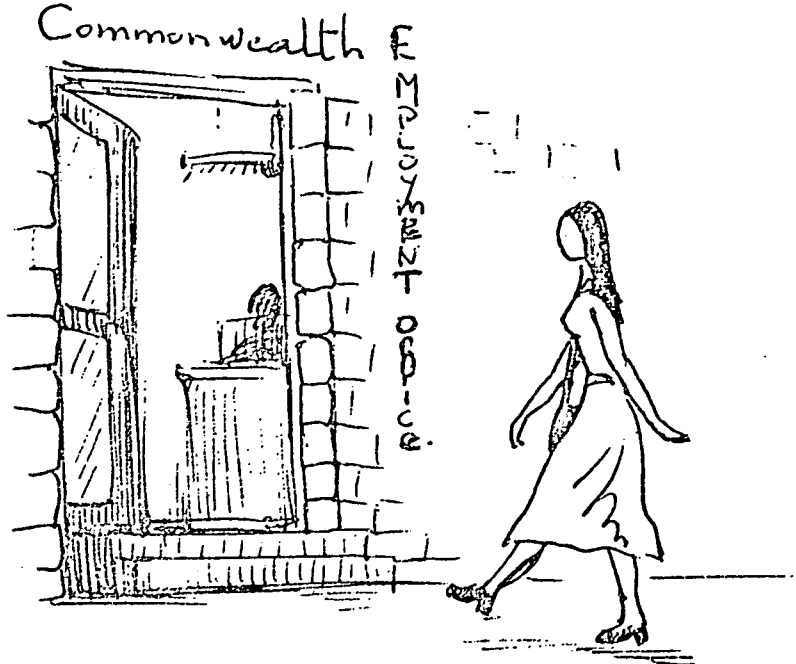 Commonwealth
EMPLOYMENT OFFICE.